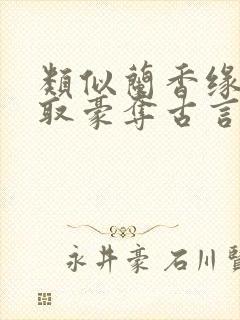 類似蘭香缘
取豪奪古言
永井豪 石川賢